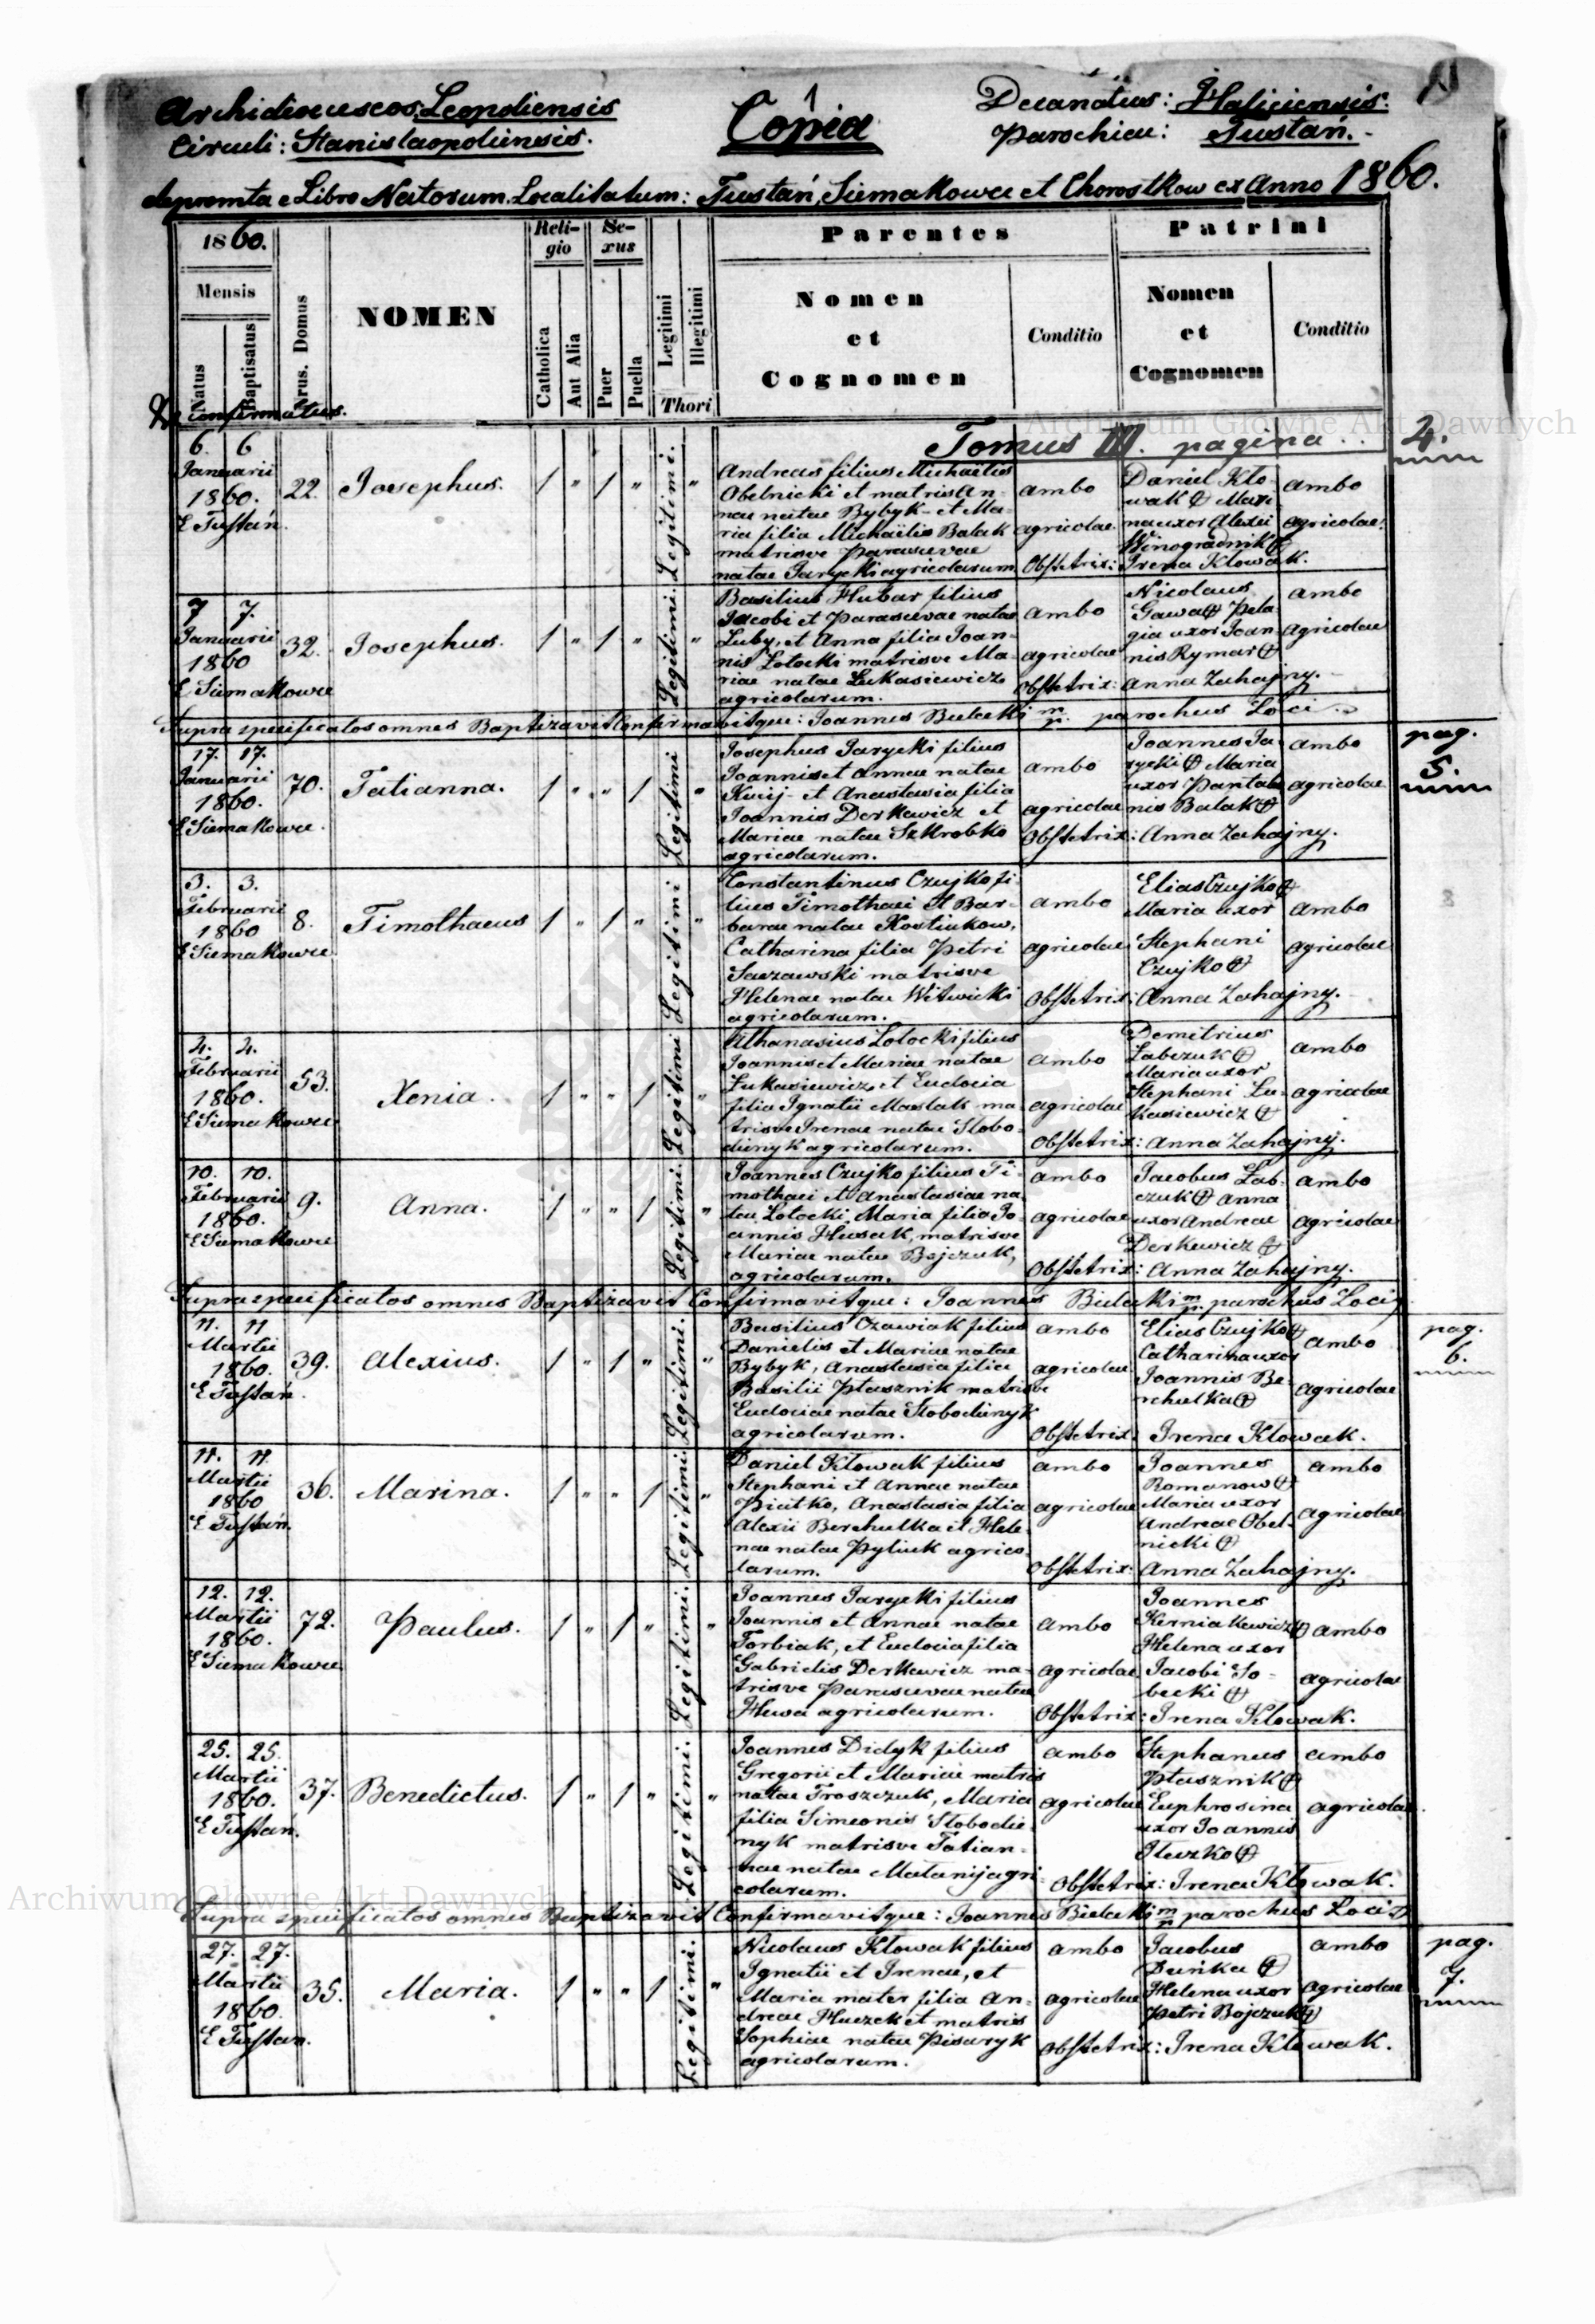 Archidioeceseos: Leopoliensis
Circuli: Stanislaopoliensis.
1
Copia
Decanatus: Haliciensis.
Parochiae: Tustań.
depromta e Libro Natorum Localitatum: Tustań, Siemakowce et Chorostkow ex Anno 1860.
1860.
Mensis
Natus
Baptisatus
Nrus. Domus
NOMEN
Reli-
gio
Catholica
Aut Alia
Se-
xus
Puer
Puella
Legitimi
Illegitimi
Thori
Parentes
Nomen
et
Cognomen
Conditio
Patrini
Nomen
et
Cognomen
Conditio
et confirmatus.
Tomus III. pagina .. 4.
6. 6
Januarii
1860.
E Tustań.
22.
Josephus.
1 " 1 "
Legitimi.
"
Andreas filius Michaelis
Obelnicki et matris An-
nae natae Bybyk - et Ma-
ria filia Michaëlis Balak
matrisve Parascevae
natae Jarycki agricolarum.
ambo
agricolae.
Daniel Kło-
wak & Mari
na uxor Alexii
Winogradnik
ambo
agricolae.
Obstetrix: Irena Kłowak.
7 7.
Januarii
1860
E Siemakowce
32.
Josephus.
1 " 1 "
Legitimi.
"
Basilius Hubar filius
Jacobi et Parascevae natae
Luby, et Anna filia Joan-
nis Łotocki matrisve Ma-
riae natae Łukasiewicz
agricolarum.
ambo
agricolae
Nicolaus
Gawa Pela-
gia uxor Joan-
nis Rymar
ambo
Agricolae
Obstetrix: Anna Zahajny.
Supra specificatos omnes Baptizavit Confirmavitque: Joannes Bielecki mp. parochus Loci.
pag.
5.
17. 17.
Januarii
1860.
E Siemakowce.
70.
Tatianna.
1 " " 1
Legitimi
"
Josephus Jarycki filius
Joannis et Annae natae
Kucij - et Anastasia filia
Joannis Derkewicz et
Mariae natae Szkrobko
agricolarum.
ambo
agricolae
Joannes Ja-
rycki Maria
uxor Pantale
nis Balak
ambo
agricolae
Obstetrix: Anna Zahajny.
3. 3.
Februarii
1860
E Siemakowce
8.
Timothaeus
1 " 1 "
Legitimi
"
Constantinus Czujko fi-
lius Timothaei et Bar-
barae natae Kostiukow,
Catharina filia Petri
Saezawski matrisve
Helenae natae Witwicki
agricolarum.
ambo
agricolae
Elias Czujko
Maria uxor
Stephani
Czujko
ambo
agricolae
Obstetrix: Anna Zahajny.
4. 4.
Februarii
1860.
E Siemakowce
53.
Xenia.
1 " " 1
Legitimi
"
Athanasius Łotocki filius
Joannis et Mariae natae
Łukasiewicz, et Eudocia
filia Ignatii Maslak ma-
trisve Irenae natae Słobo-
dienyk agricolarum.
ambo
agricolae
Demetrius
Łabczuk
Maria uxor
Stephani Łu-
kasiewicz
ambo
agricolae
Obstetrix: Anna Zahajny.
10. 10.
Februarii
1860.
E Siemakowce
9.
Anna.
1 " " 1
Legitimi.
"
Joannes Czujko filius Ti-
mothaei et Anastasiae na-
tae Łotocki, Maria filia Jo-
annis Husak, matrisve
Mariae natae Bojczuk,
agricolarum.
ambo
agricolae
Jacobus Łab-
czuk Anna
uxor Andreae
Derkewicz
ambo
agricolae
Obstetrix: Anna Zahajny.
Supra specificatos omnes Baptizavit Confirmavitque: Joannes Bielecki mp. parochus Loci
pag.
6.
11. 11
Martii
1860.
E Tustań.
39.
Alexius.
1 " 1 "
Legitimi.
"
Basilius Ozawiak filius
Danielis et Mariae natae
Bybyk, Anastasia filia
Basilii Ptasznik matrisve
Eudociae natae Słobodienyk
agricolarum.
ambo
agricolae
Elias Czujko
Catharina uxor
Joannis Be-
rehulka
ambo
agricolae
Obstetrix: Irena Kłowak.
11. 11.
Martii
1860
E Tustań.
36.
Marina.
1 " " 1
Legitimi.
"
Daniel Kłowak filius
Stephani et Annae natae
Piatko, Anastasia filia
Alexii Berehulka et Hele-
nae natae Pyliuk agrico-
larum.
ambo
agricolae
Joannes
Romanow
Maria uxor
Andreae Obel-
nicki
ambo
agricolae
Obstetrix: Anna Zahajny.
12. 12.
Martii
1860.
E Siemakowce
72.
Paulus.
1 " 1 "
Legitimi.
"
Joannes Jarycki filius
Joannis et Annae natae
Torbiak, et Eudocia filia
Gabrielis Derkewicz ma-
trisve Parascevae natae
Hawa agricolarum.
ambo
agricolae
Joannes
Kerniakewicz
Helena uxor
Jacobi So-
becki
ambo
agricolae
Obstetrix: Irena Kłowak.
25. 25.
Martii
1860.
E Tustań.
37.
Benedictus.
1 " 1 "
Legitimi.
"
Joannes Didyk filius
Gregorii et Mariae matris
natae Troszczuk, Maria
filia Simeonis Słobodie-
nyk matrisve Tatian-
nae natae Matanij agri-
colarum.
ambo
agricolae
Stephanus
Ptasznik
Euphrosina
uxor Joannis
Iluszko
ambo
agricolae.
Obstetrix: Irena Kłowak.
Supra specificatos omnes Baptizavit Confirmavitque: Joannes Bielecki mp parochus Loci
pag.
7.
27. 27.
Martii
1860.
E Tustań.
35.
Maria.
1 " " 1
Legitimi.
"
Nicolaus Kłowak filius
Ignatii et Irenae, et
Maria mater filia An-
dreae Huczek et matris
Sophiae natae Pisaryk
agricolarum.
ambo
agricolae
Jacobus
Dańka
Helena uxor
Petri Bojczuk
ambo
agricolae
Obstetrix: Irena Kłowak.
Archiwum Główne Akt Dawnych
Archiwum Główne Akt Dawnych